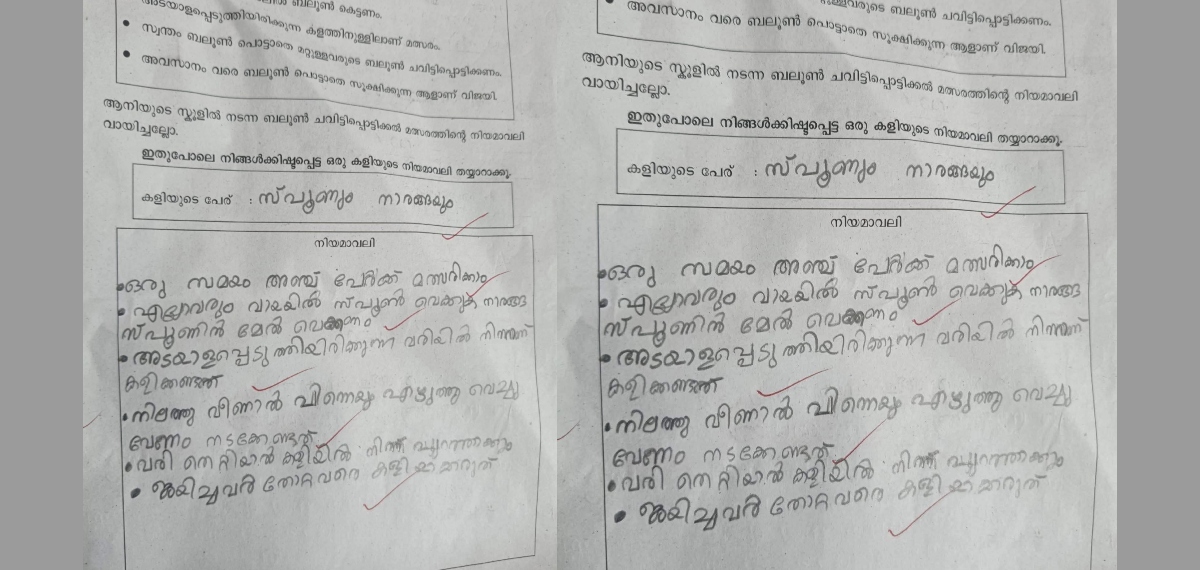 അടയാളപ്പെടുത്തിയിരിക്കുന്ന കളത്തിനുള്ളിലാണ് മത്സരം.
സ്വന്തം ബലൂൺ പൊട്ടാതെ മറ്റുള്ളവരുടെ ബലൂൺ ചവിട്ടിപ്പൊട്ടിക്കണം.
അവസാനം വരെ ബലൂൺ പൊട്ടാതെ സൂക്ഷിക്കുന്ന ആളാണ് വിജയി.
ആനിയുടെ സ്കൂളിൽ നടന്ന ബലൂൺ ചവിട്ടിപ്പൊട്ടിക്കൽ മത്സരത്തിന്റെ നിയമാവലി
വായിച്ചല്ലോ.
ഇതുപോലെ നിങ്ങൾക്കിഷ്ടപ്പെട്ട ഒരു കളിയുടെ നിയമാവലി തയ്യാറാക്കൂ.
കളിയുടെ പേര് : സ്പൂണും നാരങ്ങയും
നിയമാവലി
ഒരു സമയം അഞ്ച് പേർക്ക് മത്സരിക്കാം
എല്ലാവരും വായയിൽ സ്പൂൺ വെക്കുക നാരങ്ങ
സ്പൂണിൻ മേൽ വെക്കണം
അടയാളപ്പെടുത്തിയിരിക്കുന്ന വരിയിൽ നിന്നാണ്
കളിക്കണ്ടത്
നിലത്തു വീണാൽ പിന്നെയും എടുത്തു വെച്ചു
വേണം നടക്കേണ്ടത്
വരി തെറ്റിയാൽ കളിയിൽ നിന്ന് പുറത്താക്കും
ജയിച്ചവർ തോറ്റവരെ കളിയാക്കരുത്
ബലൂൺ ചവിട്ടിപ്പൊട്ടിക്കണം.
അവസാനം വരെ ബലൂൺ പൊട്ടാതെ സൂക്ഷിക്കുന്ന ആളാണ് വിജയി.
ആനിയുടെ സ്കൂളിൽ നടന്ന ബലൂൺ ചവിട്ടിപ്പൊട്ടിക്കൽ മത്സരത്തിന്റെ നിയമാവലി
വായിച്ചല്ലോ.
ഇതുപോലെ നിങ്ങൾക്കിഷ്ടപ്പെട്ട ഒരു കളിയുടെ നിയമാവലി തയ്യാറാക്കൂ.
കളിയുടെ പേര് : സ്പൂണും നാരങ്ങയും
നിയമാവലി
ഒരു സമയം അഞ്ച് പേർക്ക് മത്സരിക്കാം
എല്ലാവരും വായയിൽ സ്പൂൺ വെക്കുക നാരങ്ങ
സ്പൂണിൻ മേൽ വെക്കണം
അടയാളപ്പെടുത്തിയിരിക്കുന്ന വരിയിൽ നിന്നാണ്
കളിക്കണ്ടത്
നിലത്തു വീണാൽ പിന്നെയും എടുത്തു വെച്ചു
വേണം നടക്കേണ്ടത്
വരി തെറ്റിയാൽ കളിയിൽ നിന്ന് പുറത്താക്കും
ജയിച്ചവർ തോറ്റവരെ കളിയാക്കരുത്